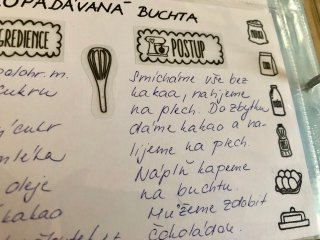 OPADÁVANÁ BUCHTA
GREDIENCE
POSTUP
polohr. m.
cukru
cukr
mléka
oleje
kakao
Smícháme vše bez
kakaa, nalijeme
na plech. Do zbytku
dáme kakao a na-
lijeme na plech.
Náplň kapeme
na buchtu.
Můžeme zdobit
čokoládou.